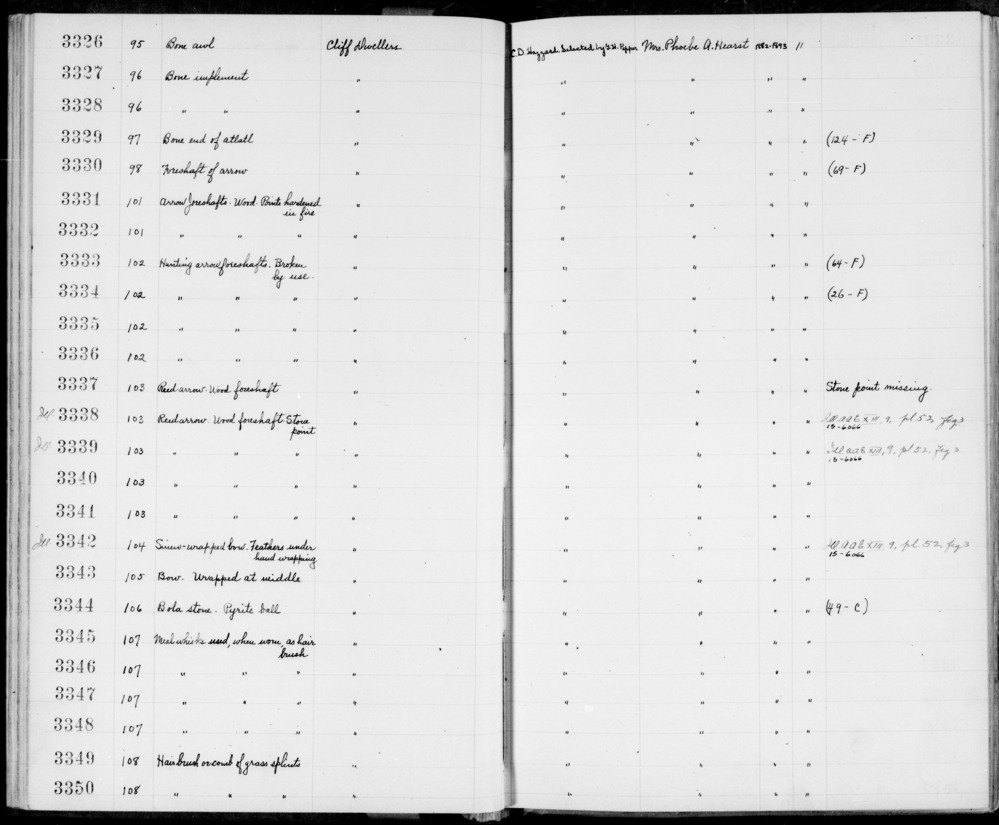 3326 95 Bone awl Cliff Dwellers C.D. Hazzard. Selected by G.H. Pepper Mrs. Phoebe A. Hearst 1892-1893 11
3327 96 Bone implement " " " " "
3328 96 " " " " " " "
3329 97 Bone end of atlatl " " " " " (124-F)
3330 98 Foreshaft of arrow " " " " " (69-F)
3331 101 Arrow foreshafts. Wood. Points hardened " " " " "
in fire
3332 101 " " " " " " " "
3333 102 Hunting arrow foreshafts. Broken " " " " " (64-F)
by use.
3334 102 " " " " " " " " (26-F)
3335 102 " " " " " " " "
3336 102 " " " " " " " "
3337 103 Reed arrow. Wood foreshaft " " " " " Stone point missing.
Ill. 3338 103 Reed arrow Wood foreshaft Stone " " " " " Ill AAE XIII, 9, pl 52, fig 3
point 15-6066
Ill. 3339 103 " " " " " " " " Ill AAE XIII, 9, pl 52, fig
15-6066
3340 103 " " " " " " " "
3341 103 " " " " " " " "
Ill. 3342 104 Sinew-wrapped bow. Feathers under " " " " " Ill AAE XIII, 9, pl 52, fig 3
hand wrapping 15-6066
3343 105 Bow. Wrapped at middle " " " " "
3344 106 Bola stone. Pyrite ball " " " " " (49-C)
3345 107 Meal whisks used, when worn, as hair " " " " "
brush
3346 107 " " " " " " " "
3347 107 " " " " " " " "
3348 107 " " " " " " " "
3349 108 Hair brush or comb of grass splints " " " " "
3350 108 " " " " " " " "